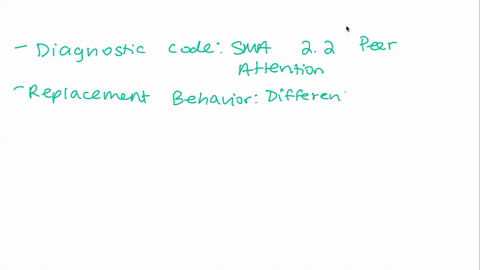 - Diagnostic code: SMA 2.2 Peer
Attention
- Replacement Behavior: Differen